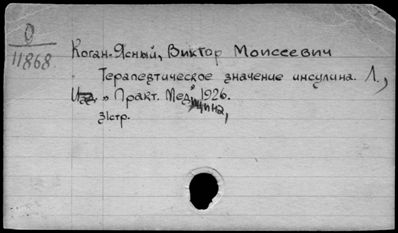 0
11868
Коган-Ясный, Виктор Моисеевич
Терапевтическое значение инсулина. Л.,
Изд. "Практ. Медицина", 1926.
31стр.